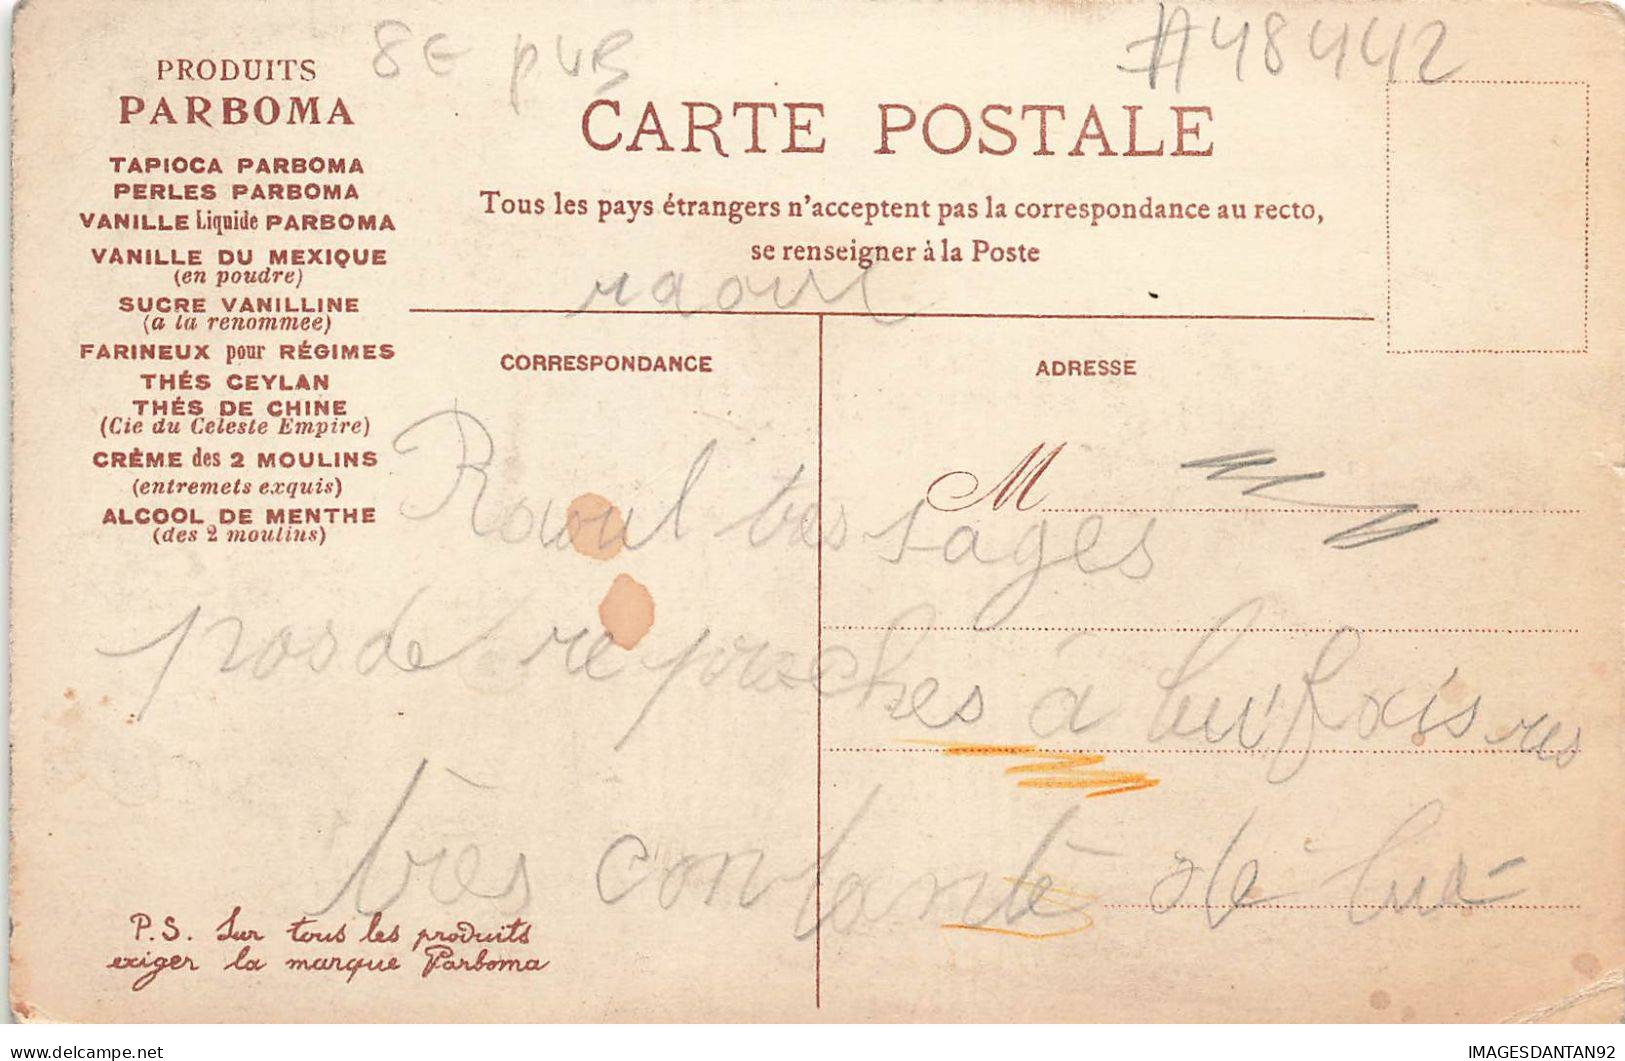 8€ PUB
#48442
PRODUITS
PARBOMA
TAPIOCA PARBOMA
PERLES PARBOMA
VANILLE Liquide PARBOMA
VANILLE DU MEXIQUE
(en poudre)
SUCRE VANILLINE
(a la renommee)
FARINEUX pour RÉGIMES
THÉS CEYLAN
THÉS DE CHINE
(Cie du Celeste Empire)
CRÈME des 2 MOULINS
(entremets exquis)
ALCOOL DE MENTHE
(des 2 moulins)
CARTE POSTALE
Tous les pays étrangers n'acceptent pas la correspondance au recto,
se renseigner à la Poste
raoul
CORRESPONDANCE
ADRESSE
M
Raoul tres sages
pas de reproches à
très contante de lui
P.S. Sur tous les produits
exiger la marque Parboma
delcampe.net
IMAGESDANTAN92